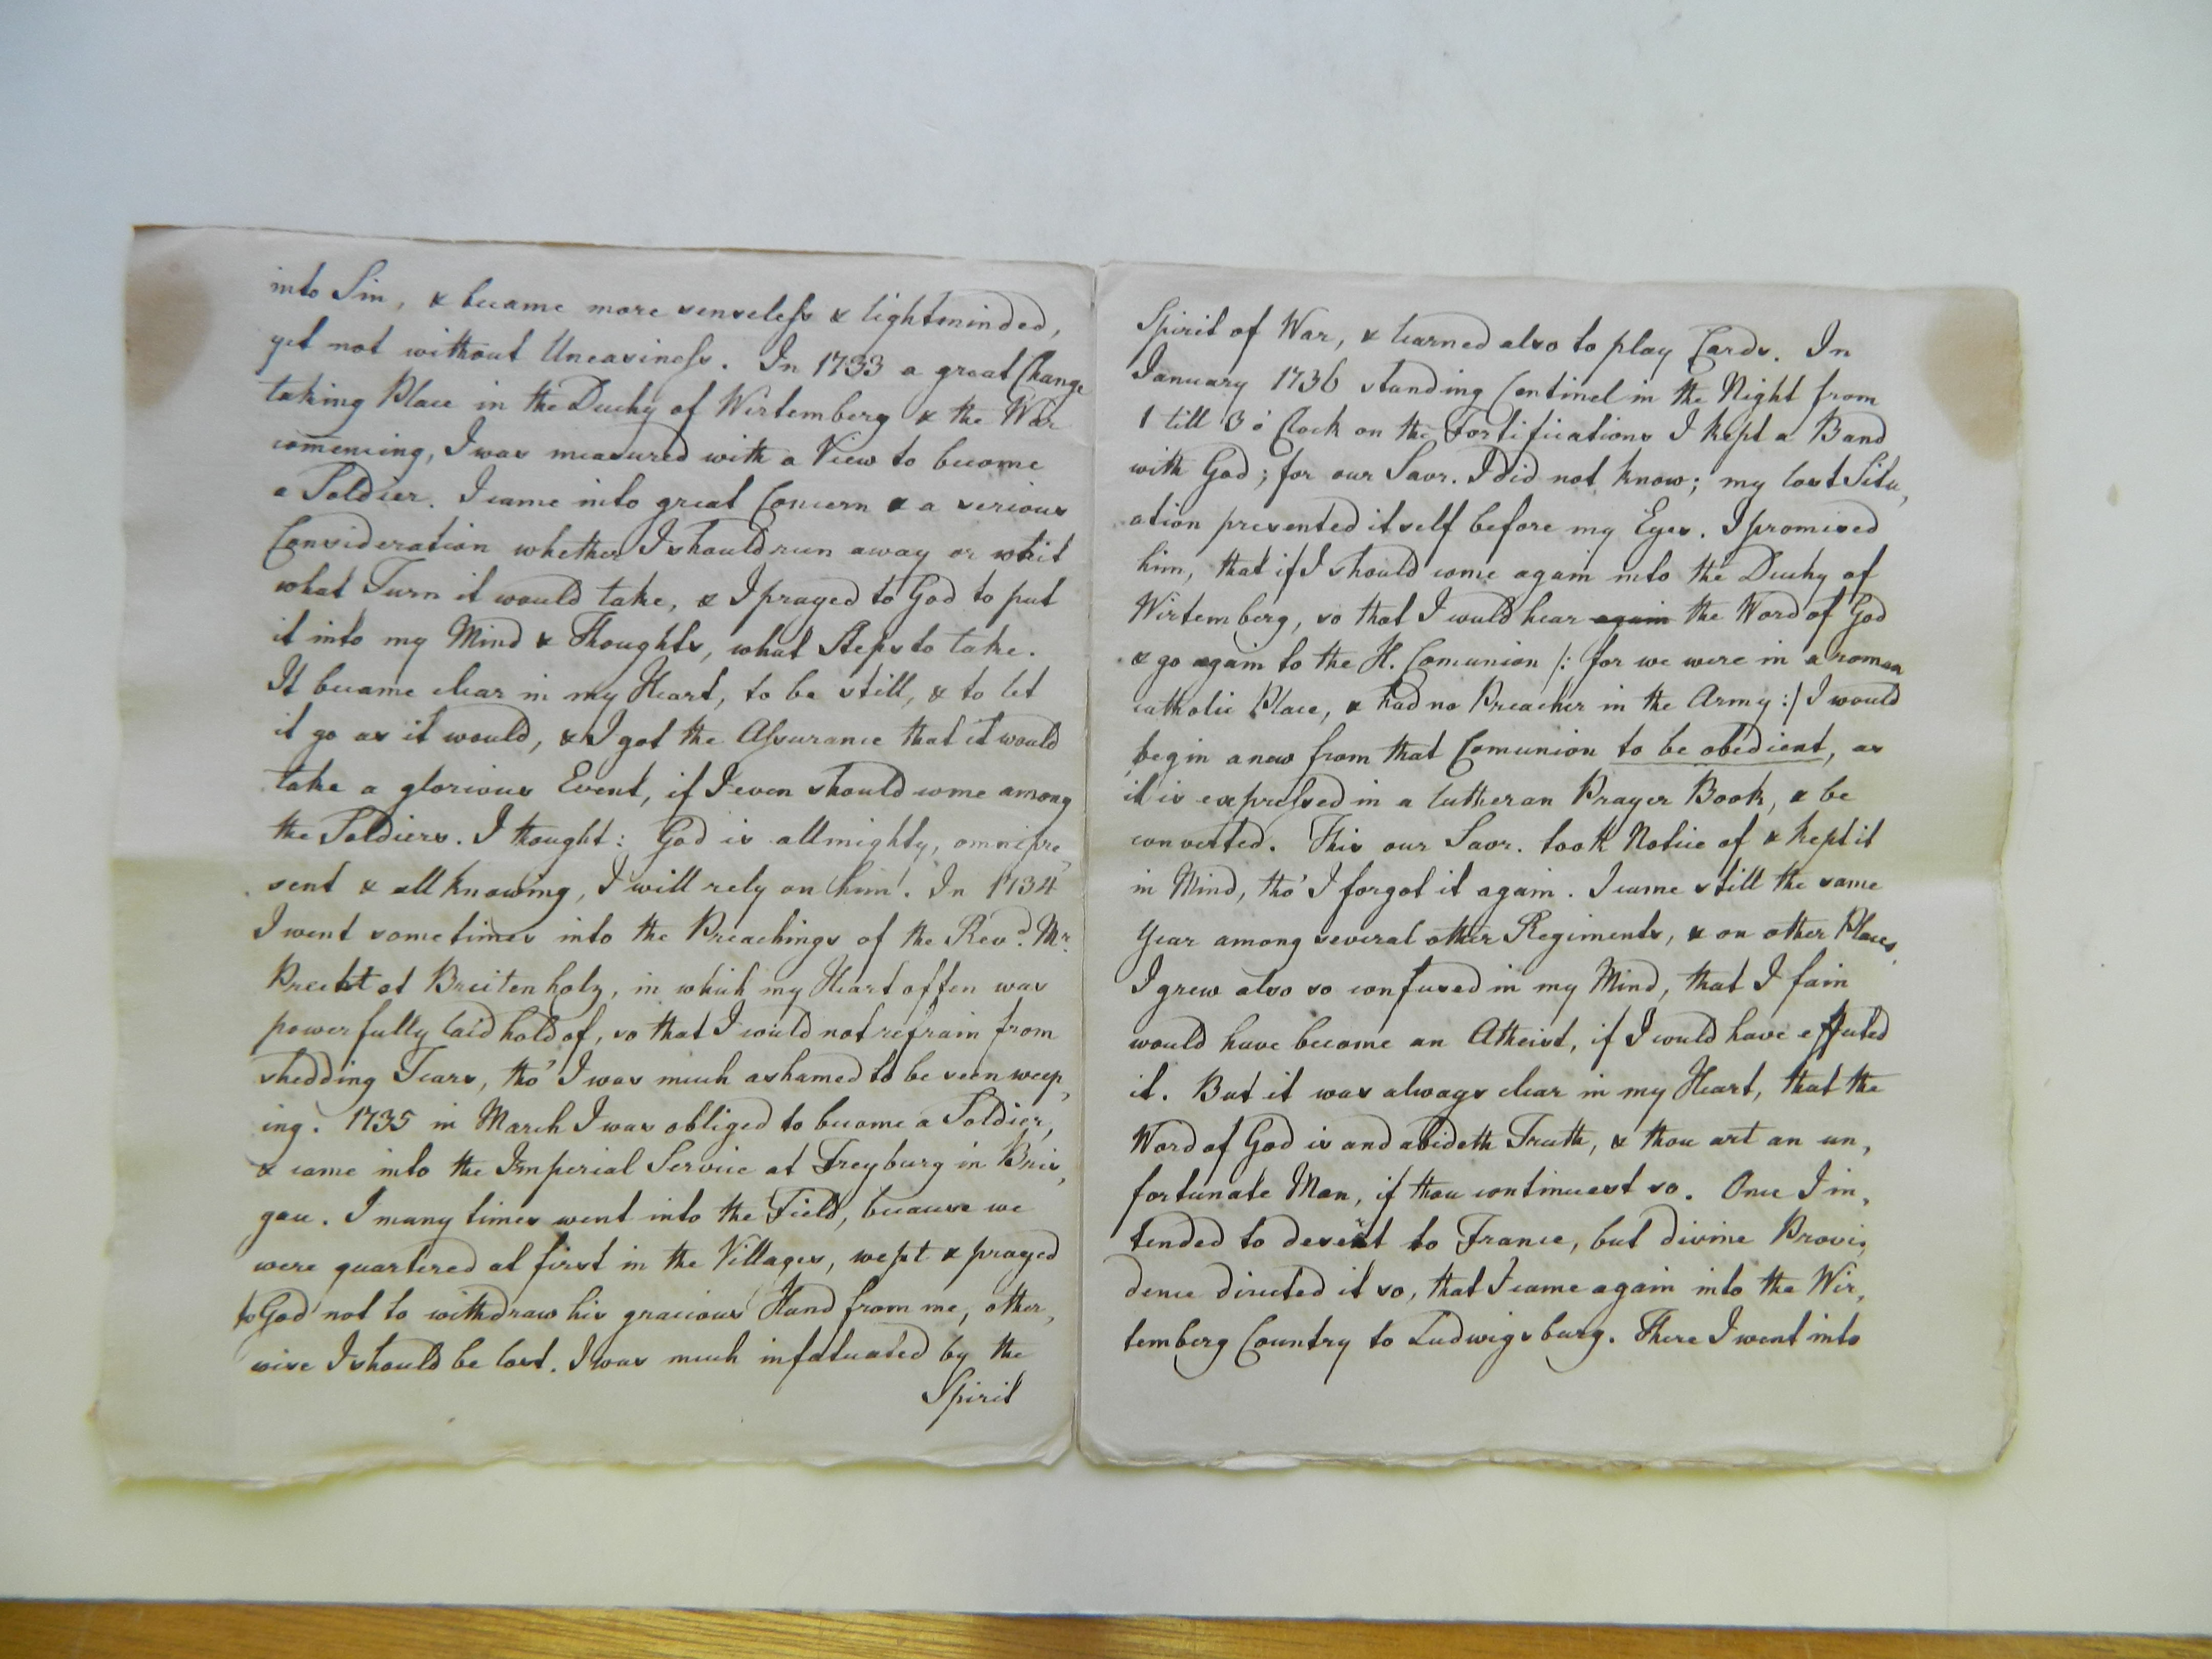 into Sin, & became more senseless & lightminded,
yet not without Uneasiness. In 1733 a great Change
taking Place in the Duchy of Wirtemberg & the War
comencing, I was measured with a View to become
a Soldier. I came into great Concern & a serious
Consideration whether I should run away or wait
what Turn it would take, & I prayed to God to put
it into my Mind & Thoughts, what Steps to take.
It became clear in my Heart, to be still, & to let
it go as it would, & I got the Assurance that it would
take a glorious Event, if I even should come among
the Soldiers. I thought: God is allmighty, omnipre,
sent & all knowing, I will rely on him. In 1734
I went sometimes into the Preachings of the Revd. Mr.
Precht at Breitenholz, in which my Heart often was
powerfully laid hold of, so that I could not refrain from
shedding Tears, tho' I was much ashamed to be seen weep,
ing. 1735 in March I was obliged to become a Soldier,
& came into the Imperial Service at Freyburg in Bris,
gau. I many times went into the Field, because we
were quartered at first in the Villages, wept & prayed
to God not to withdraw his gracious Hand from me, other,
wise I should be lost. I was much infatuated by the
Spirit
Spirit of War, & learned also to play Cards. In
January 1736 standing Centinel in the Night from
1 till 3 o'Clock on the Fortifications I kept a Band
with God; for our Savr. I did not know; my lost Situ,
ation presented itself before my Eyes. I promised
him, that if I should come again into the Duchy of
Wirtemberg, so that I could hear again the Word of God
& go again to the H. Comunion /: for we were in a roman
catholic Place, & had no Preacher in the Army :/ I would
begin anew from that Comunion to be obedient, as
it is expressed in a lutheran Prayer Book, & be
converted. This our Savr. took Notice of & kept it
in Mind, tho' I forgot it again. I came still the same
Year among several other Regiments, & on other Places,
I grew also so confused in my Mind, that I fain
would have become an Atheist, if I could have effected
it. But it was always clear in my Heart, that the
Word of God is and abideth Truth, & thou art an un,
fortunate Man, if thou continuest so. Once I in,
tended to desert to France, but divine Provi,
dence directed it so, that I came again into the Wir,
temberg Country to Ludwigsburg. There I went into